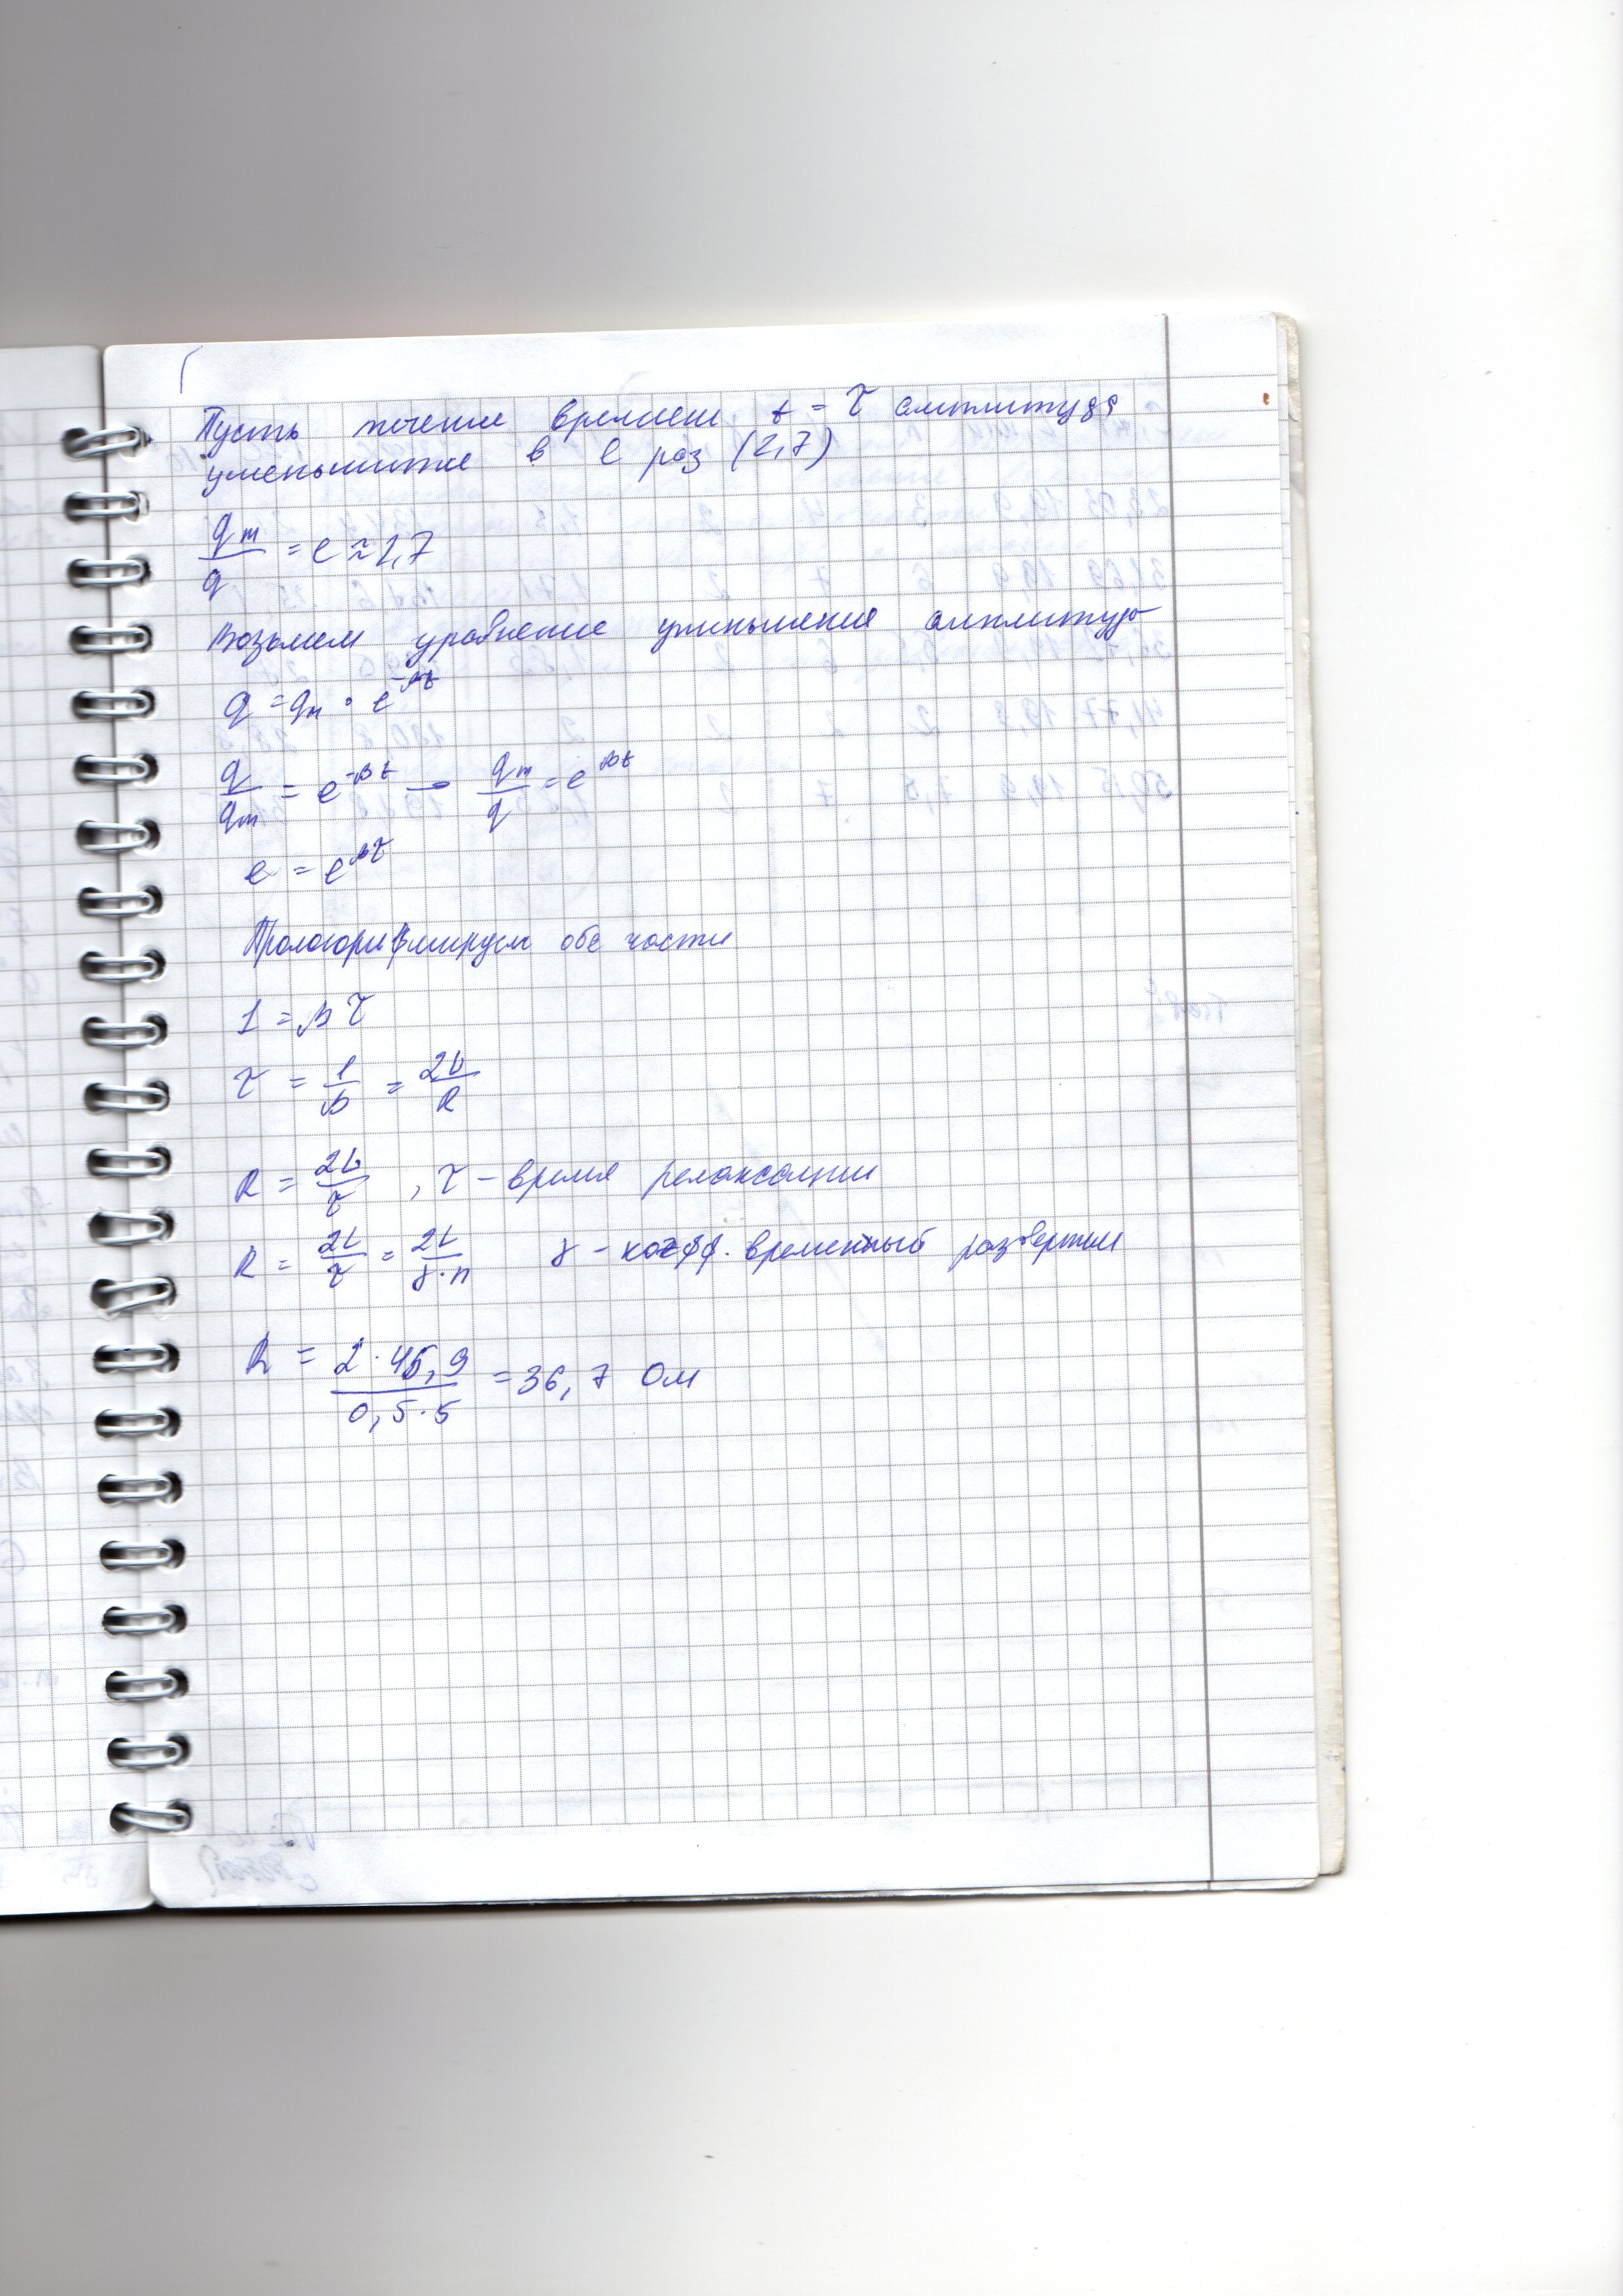 Пусть течение времени t = τ амплитуда
уменьшится в e раз (2,7)
qm/q = e ≈ 2,7
Возьмем уравнение уменьшения амплитуды
q = qm · e^-βt
q/qm = e^-βt → qm/q = e^βt
e = e^βτ
Прологорифмируем обе части
1 = βτ
τ = 1/β = 2L/R
R = 2L/τ , τ - время релаксации
R = 2L/τ = 2L/γ·n γ - коэфф. временный развертки
R = 2·45,9/0,5·5 = 36,7 Ом